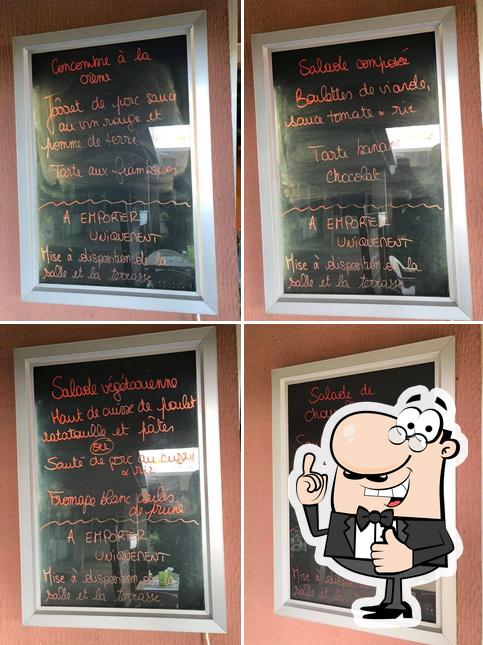 Concombre à la
crème
Jarret de porc sauce
au vin rouge et
pomme de terre
Tarte aux framboises
A EMPORTER
UNIQUEMENT
Mise à disposition de la
salle et la terrasse
Salade composée
Boulettes de viande,
sauce tomate & riz
Tarte banane
chocolat
A EMPORTER
UNIQUEMENT
Mise à disposition de la
salle et la terrasse
Salade végétarienne
Haut de cuisse de poulet
ratatouille et pâtes
ou
Sauté de porc au curry
& riz
Fromage blanc coulis
de prune
A EMPORTER
UNIQUEMENT
Mise à disposition de la
salle et la terrasse
Salade de
Mise à
salle et la